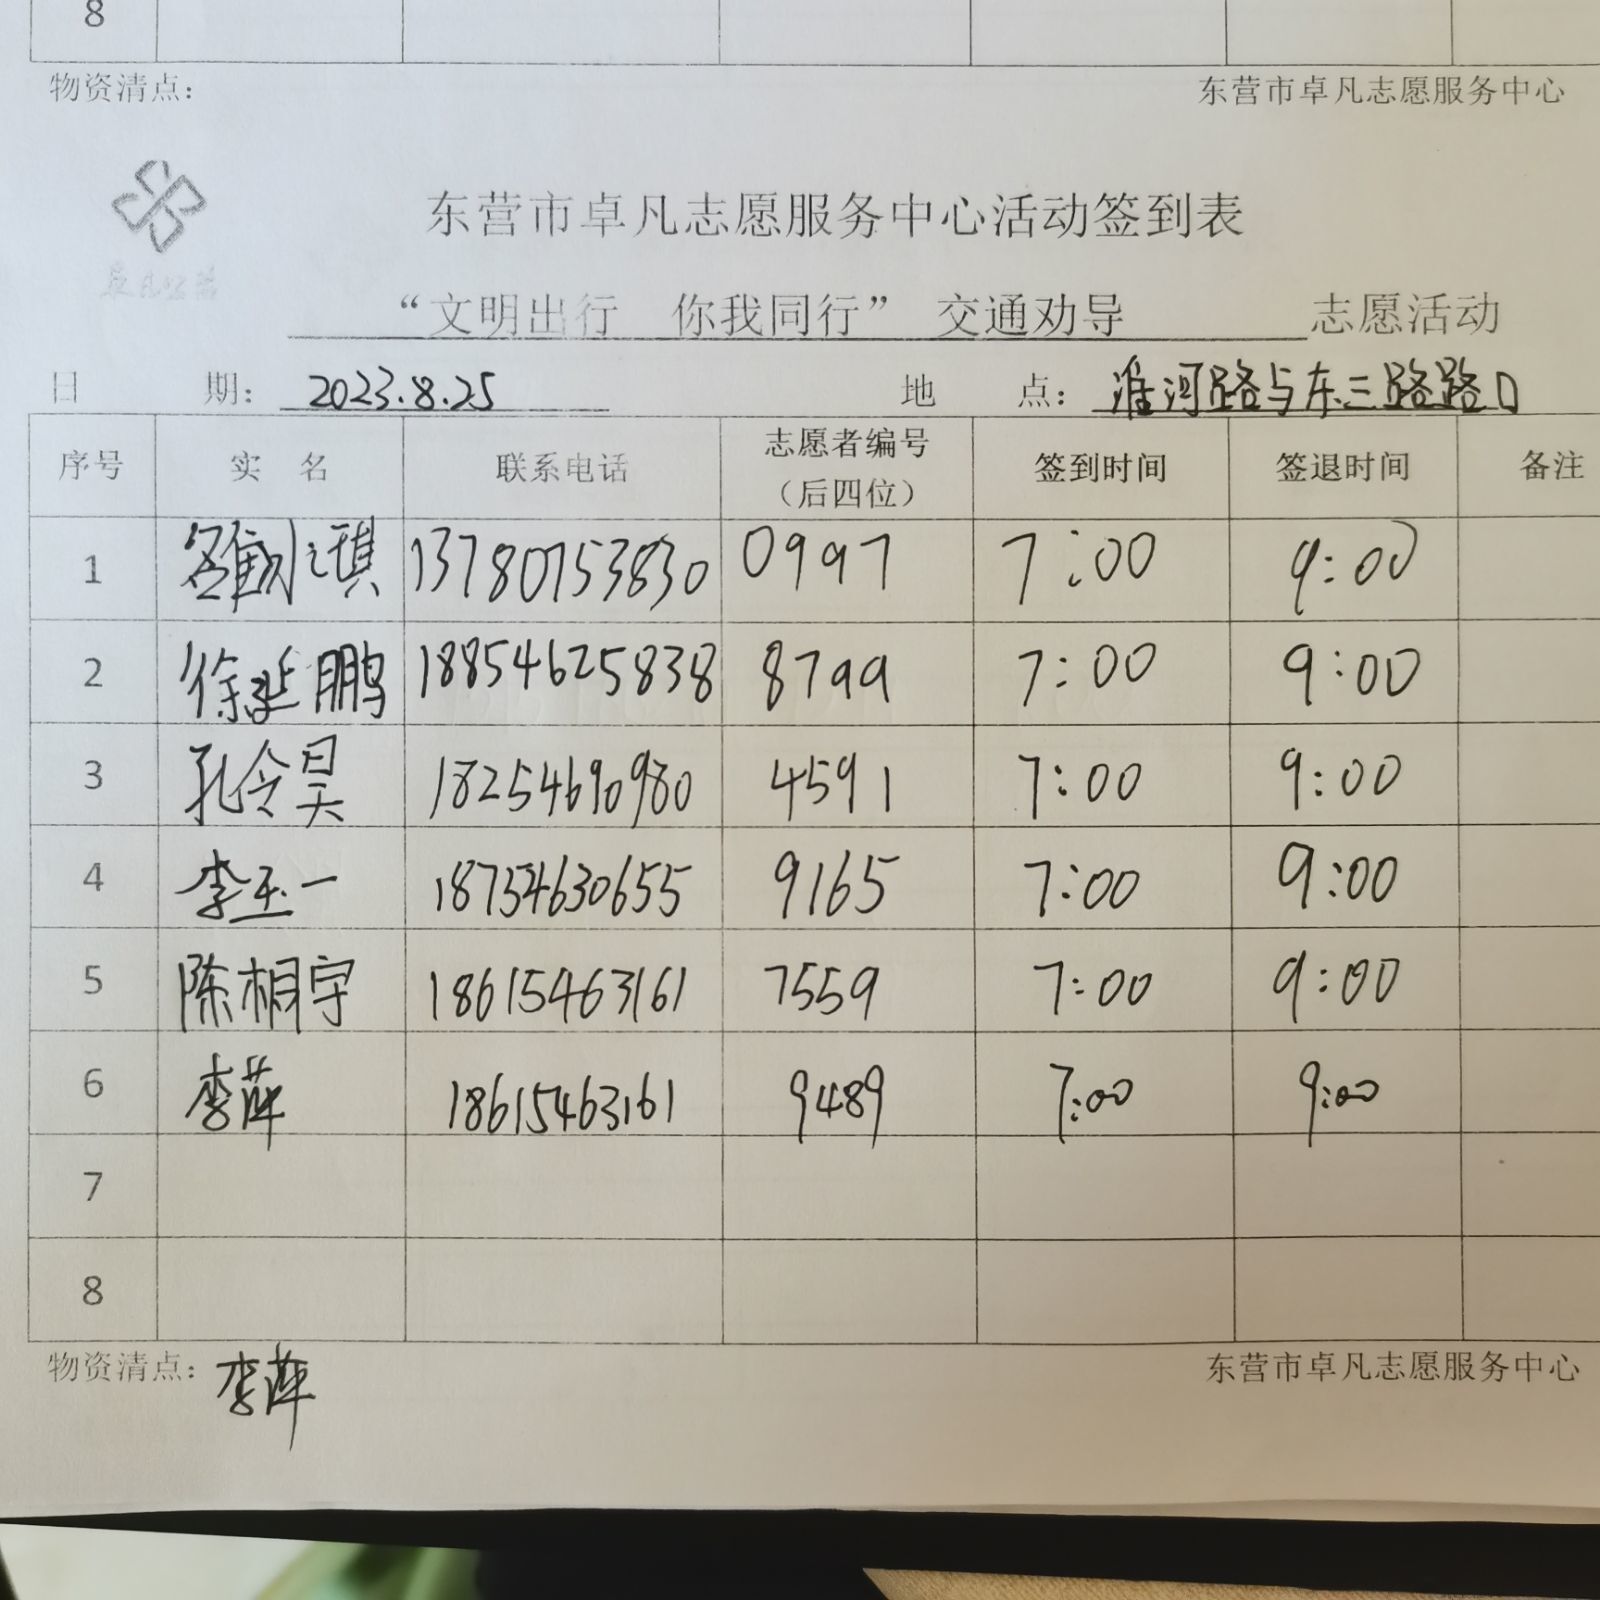 8
物资清点： 东营市卓凡志愿服务中心
东营市卓凡志愿服务中心活动签到表
“文明出行 你我同行” 交通劝导 志愿活动
日 期： 2023.8.25 地 点： 淮河路与东三路路口
序号 实 名 联系电话 志愿者编号（后四位） 签到时间 签退时间 备注
1 13780753830 0997 7:00 9:00
2 徐延鹏 18854625838 8799 7:00 9:00
3 孔令昊 18254690980 4591 7:00 9:00
4 李玉一 18754630655 9165 7:00 9:00
5 陈相宇 18615463161 7559 7:00 9:00
6 李萍 18615463161 9489 7:00 9:00
7
8
物资清点： 李萍 东营市卓凡志愿服务中心